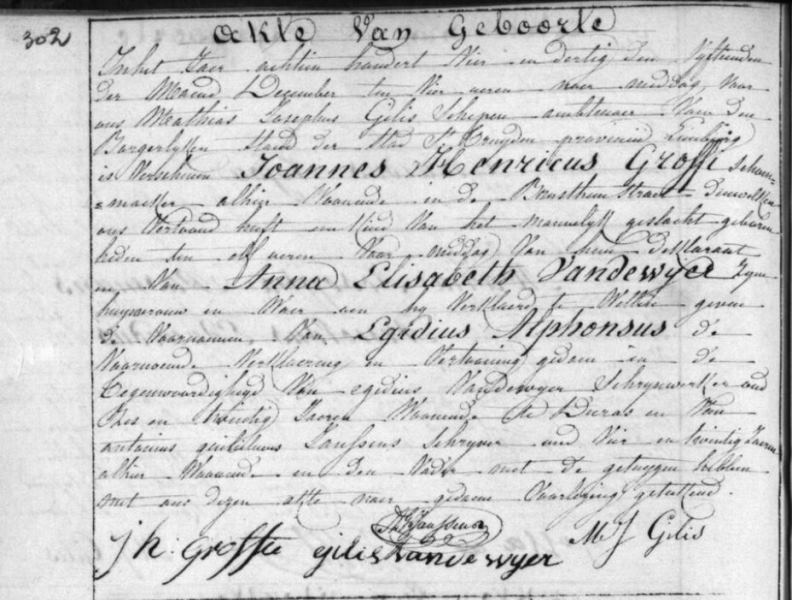 302
Akte Van Geboorte
In het Jaer achtien hondert Vier en dertig den Vyftienden
der Maend December ten Vier ueren naer middag, Voor
ons Mathias Josephus Gelis Schepen ambtenaer Van den
Borgerlyken stand der stad St Truyden provincie Limburg
is Verscheenen Joannes Henricus Groffi schoen=
=maeker alhier Woonende in de Brusthem Straet denwelken
ons Vertoond heeft een kind Van het mannelyk geslacht geboren
heden ten elf ueren Voor middag Van hem deklarant
en Van Anna Elisabeth Vandewyer Zyne
huysvrouw en Waer aen hy Verklaerd te Willen geven
de Voornamen Van Egidius Alphonsus de
Voornoemde Verklaering en Vertooning gedaen in de
Tegenwoordigheyd Van egidius Vandewyer Schrynwerker oud
Zes en twintig Jaeren Woonende te Duras en Van
antonius guilielmus Janssens Schryver oud Vier en twintig Jaeren
alhier Woonende en den Vader met de getuygen hebben
met ons dezen akte naer gedaene Voorlezing getekend.
Janssens
j h: Groffie gilis Vandewyer M J Gelis